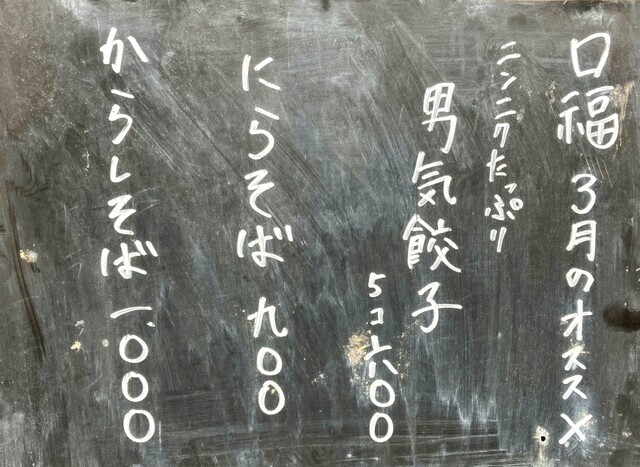 口福 3月のオススメ
ニンニクたっぷり
男気餃子
5コ 六〇〇
にらそば 九〇〇
からしそば 一、〇〇〇